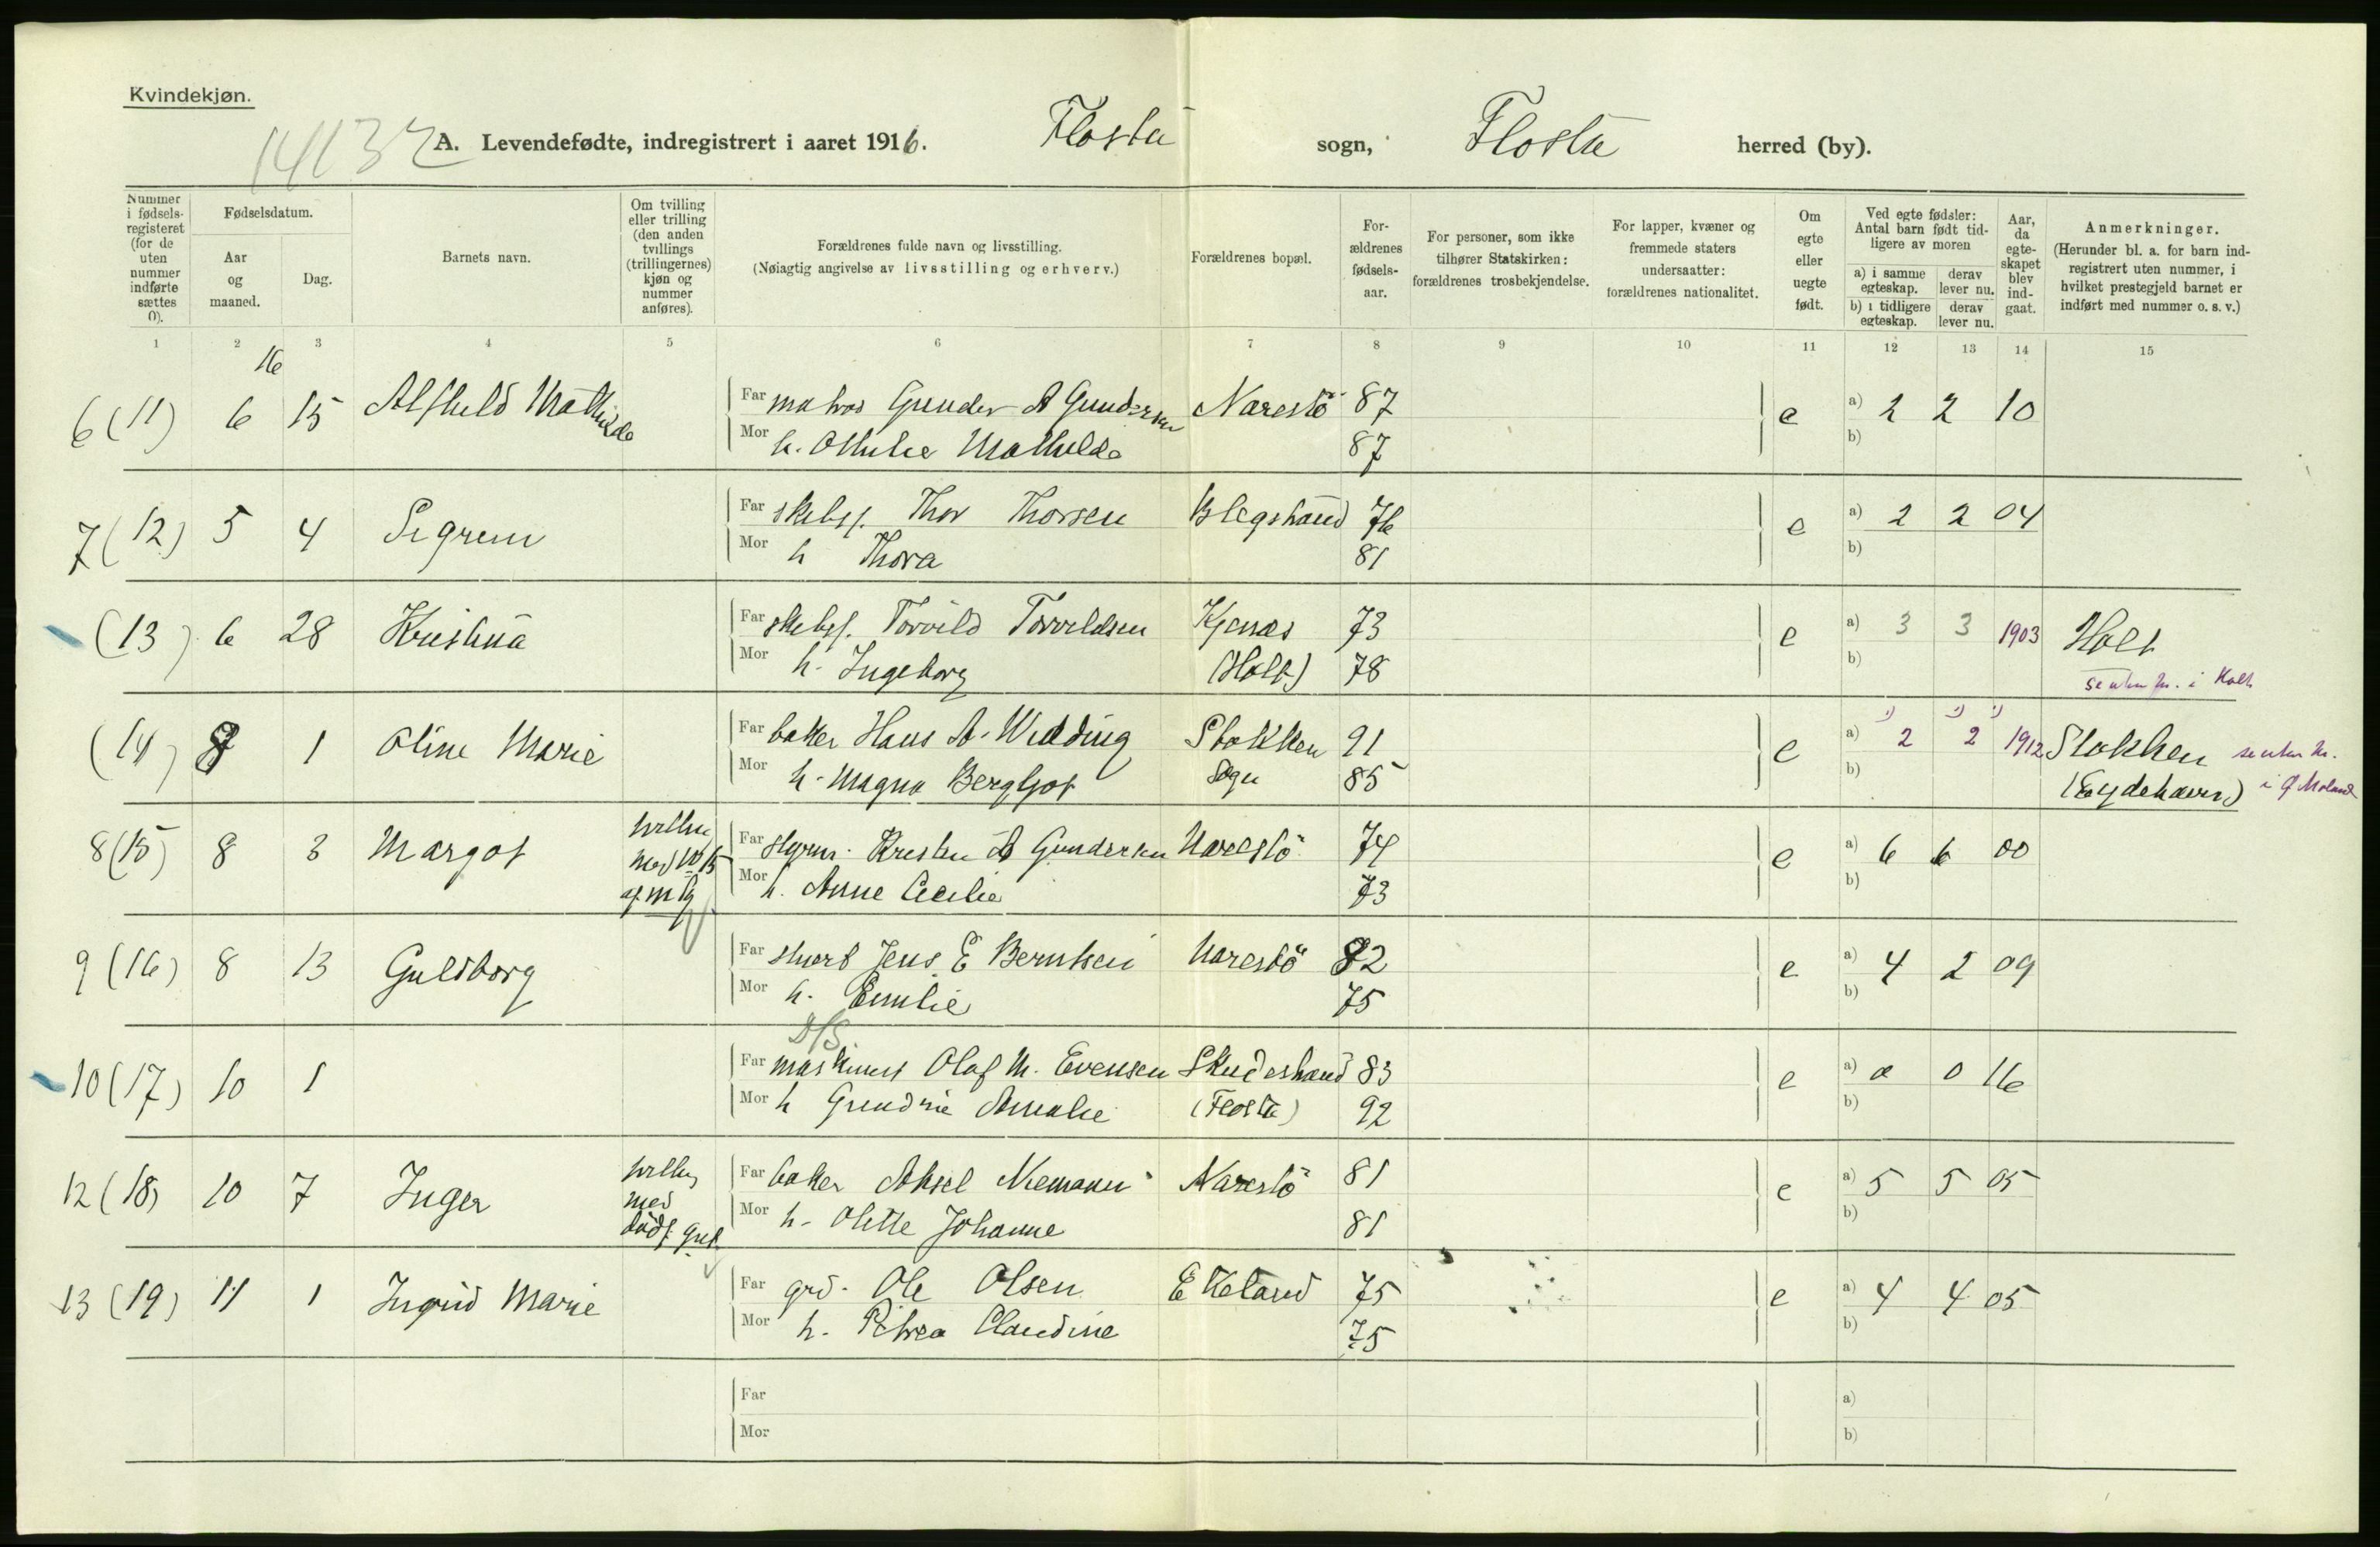 Kvindekjøn.
14132
A. Levendefødte, indregistrert i aaret 1916. Flosta sogn, Flosta herred (by).
Nummer i fødselsregisteret (for de uten nummer indførte sættes 0).
Fødselsdatum.
Aar og maaned.
Dag.
Barnets navn.
Om tvilling eller trilling (den anden tvillings (trillingernes) kjøn og nummer anføres).
Forældrenes fulde navn og livsstilling.
(Nøiagtig angivelse av livsstilling og erhverv.)
Forældrenes bopæl.
Forældrenes fødselsaar.
For personer, som ikke tilhører Statskirken: forældrenes trosbekjendelse.
For lapper, kvæner og fremmede staters undersaatter: forældrenes nationalitet.
Om egte eller uegte født.
Ved egte fødsler: Antal barn født tidligere av moren
a) i samme egteskap. derav lever nu.
b) i tidligere egteskap. derav lever nu.
Aar, da egteskapet blev indgaat.
Anmerkninger.
(Herunder bl. a. for barn indregistrert uten nummer, i hvilket prestegjeld barnet er indført med nummer o. s. v.)
1 2 3 4 5 6 7 8 9 10 11 12 13 14 15
16
6 (11) 6 15 Alfhild Mathilde Far matros Gunder A Gundersen Narestö 87 e a) 2 2 10
Mor h. Othilie Mathilde 87 b)
7 (12) 5 4 Sigrun Far skibsf. Thor Thorsen 76 e a) 2 2 04
Mor h Thora 81 b)
(13) 6 28 Kristina Far skibsf. Torvild Torvildsen Kjenæs 73 e a) 3 3 1903 Holt
Mor h. Ingeborg (Holt) 78 b) i Holt
(14) 8 1 Oline Marie Far baker Hans A. Wedding Stokken 91 e a) 1) 2 1) 2 1) 1912 Stokken
Mor h. Magna Bergljot Sogn 85 b) (Eydehavn) i Ø Moland
8 (15) 8 3 Margot tvilling med No 15 af m kj Far styrm. Kristen A Gundersen Narestö 74 e a) 6 6 00
Mor h. Anne Cecilie 73 b)
9 (16) 8 13 Guldborg Far Jens E Berntsen Narestö 82 e a) 4 2 09
Mor h. Emilie 75 b)
D/S
10 (17) 10 1 Far maskinist Olaf M. Evensen 83 e a) 0 0 16
Mor h Amalie (Flosta) 92 b)
12 (18) 10 7 Inger tvilling med dødf. gut Far baker Aksel Niemann Narestö 81 e a) 5 5 05
Mor h. Olette Johanne 81 b)
13 (19) 11 1 Ingrid Marie Far grd. Ole Olsen Ekeland 75 e a) 4 4 05
Mor h. Petrea Claudine 75 b)
Far a)
Mor b)